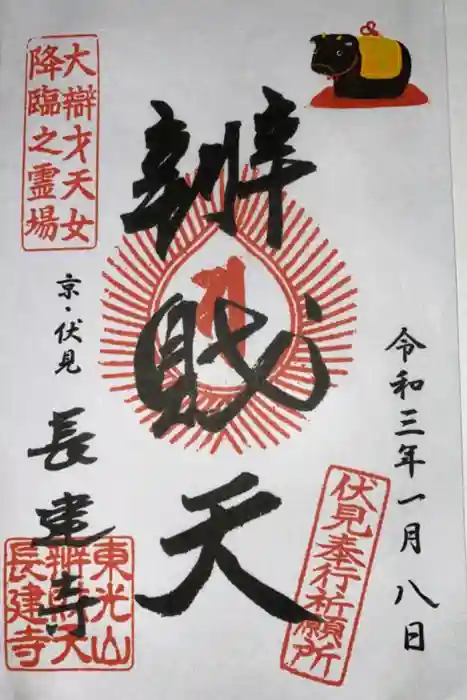 令和三年一月八日
伏見奉行祈願所
辨財天
大辯才天女
降臨之霊場
京・伏見
長建寺
東光山
辨財天
長建寺